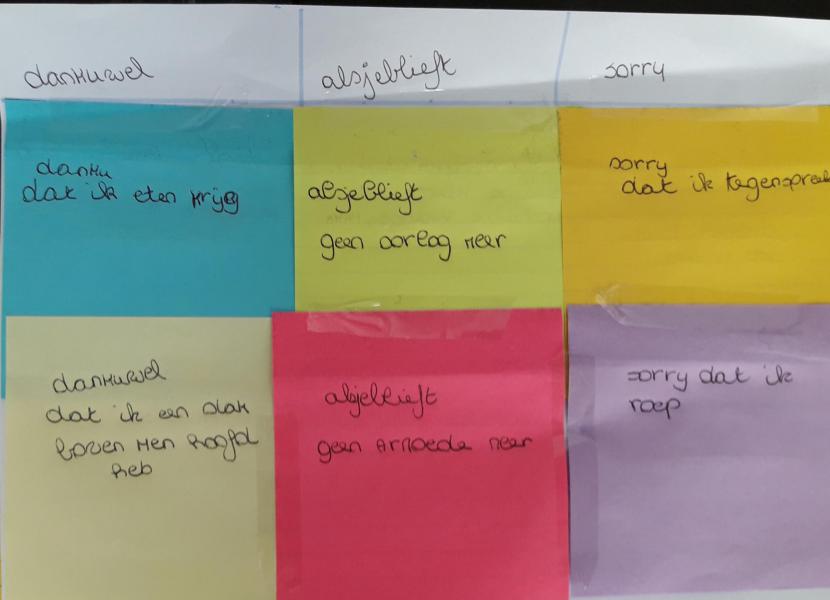 dankuwel
alsjeblieft
sorry
danku
dat ik eten krijg
alsjeblieft
geen oorlog meer
sorry
dat ik tegenspreek
dankuwel
dat ik een dak
boven men hoofd
heb
alsjeblieft
geen armoede meer
sorry dat ik
roep